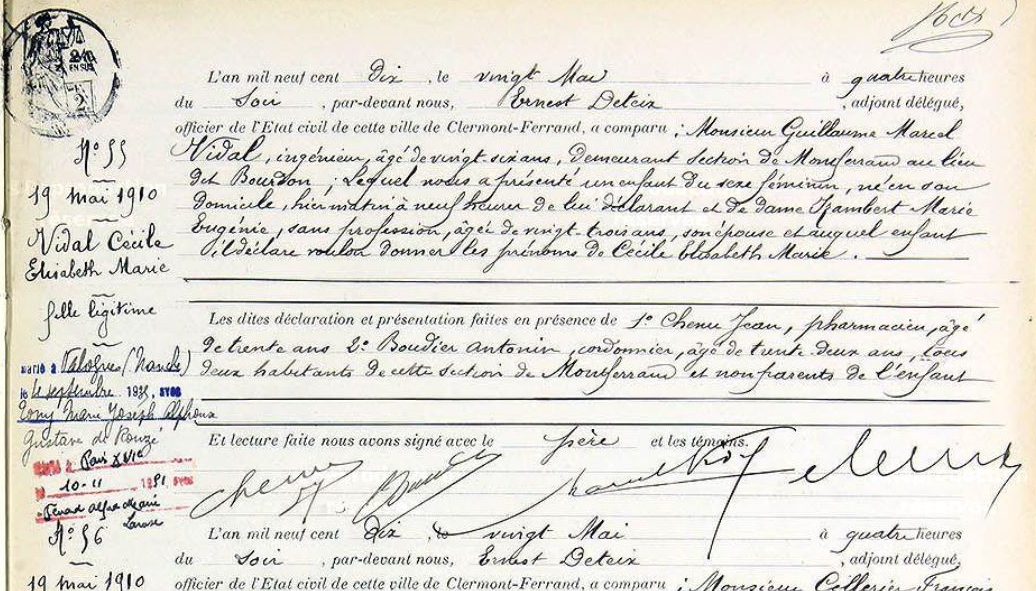 N° 55
19 mai 1910
Vidal Cécile
Elisabeth Marie
fille légitime
marié à Valognes (Manche)
le 4 septembre 193, avec
Tony Marie Joseph Alphonse
Gustave de
Paris XVIe
10-11 1951
L'an mil neuf cent Dix, le vingt Mai à quatre heures
du Soir, par-devant nous, Ernest Deteix, adjoint délégué,
officier de l'Etat civil de cette ville de Clermont-Ferrand, a comparu ; Monsieur Guillaume Marcel
Vidal, ingénieur, âgé de vingt six ans, demeurant section de Montferrand au lieu
dit Bourdon ; Lequel nous a présenté un enfant du sexe féminin, né en son
domicile, hier matin à neuf heures de lui déclarant et de dame Jambert Marie
Eugénie, sans profession, âgée de vingt-trois ans, son épouse et auquel enfant
il déclare vouloir donner les prénoms de Cécile Elisabeth Marie.
Les dites déclaration et présentation faites en présence de 1° Chenu Jean, pharmacien, âgé
de trente ans 2° Boudier Antonin, cordonnier, âgé de trente deux ans, tous
deux habitants de cette section de Montferrand et non parents de l'enfant
Et lecture faite nous avons signé avec le père et les témoins.
N° 56
19 mai 1910
L'an mil neuf cent Dix, le vingt Mai à quatre heures
du Soir, par-devant nous, Ernest Deteix, adjoint délégué,
officier de l'Etat civil de cette ville de Clermont-Ferrand, a comparu ; Monsieur Cellerier François